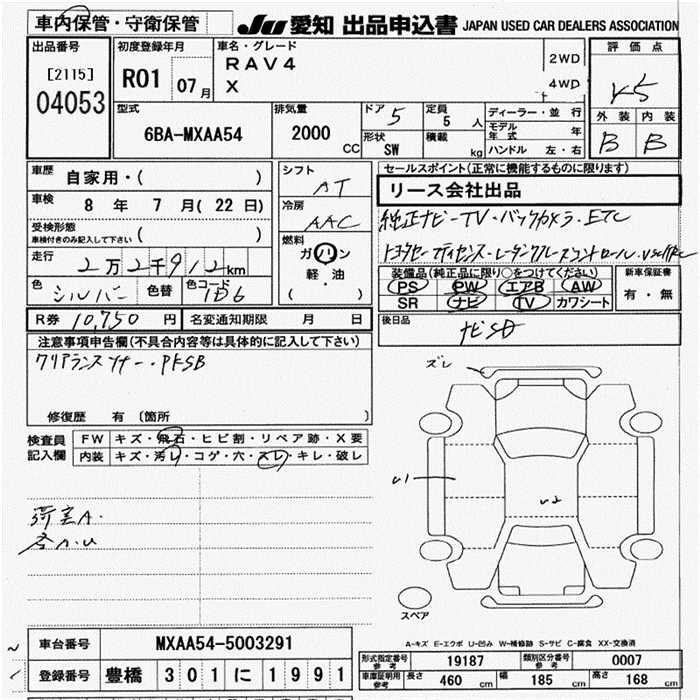 車内保管・守衛保管
JU 愛知 出品申込書 JAPAN USED CAR DEALERS ASSOCIATION
出品番号 初度登録年月 車名・グレード 評価点
[2115] R01 07月 RAV4 2WD
04053 X 4WD
型式 排気量 ドア 5 定員 5人 ディーラー・並行 外装 内装
6BA-MXAA54 2000 CC 形状 SW 積載 kg モデル年式 年 B B
ハンドル 左・右
車歴 自家用・( ) シフト AT セールスポイント(正常に機能するものに限ります)
車検 8年 7月(22日) 冷房 AAC リース会社出品
受検形態 車検付きのみ記入して下さい ( ) 燃料 ガソリン 軽・油 ( )
純正ナビーTV・バックカメラ・ETC
走行 2万2千912km
色 シルバー 色替 色コード 1D6
装備品(純正品に限り○をつけてください) 新車保証書
PS PW エアB AW 有・無
SR ナビ TV カワシート
R券 10,750 円 名変通知期限 月 日 後日品
ナビSD
注意事項申告欄(不具合内容等は具体的に記入して下さい)
クリアランスソナー・PKSB
修復歴 有〔箇所 〕
ズレ
検査員記入欄 FW キズ・飛石・ヒビ割・リペア跡・X要
内装 キズ・汚レ・コゲ・穴・スレ・キレ・破レ
U1
U2
荷室A・
スペア
A-キズ E-エクボ U-凹み W-補修跡 S-サビ C-腐食 XX-交換済
車台番号 MXAA54-5003291
登録番号 豊橋 301 に 1991
形式指定番号 参考 19187 類別区分番号 参考 0007
車庫証明用 参考 長さ 460 cm 幅 185 cm 高さ 168 cm